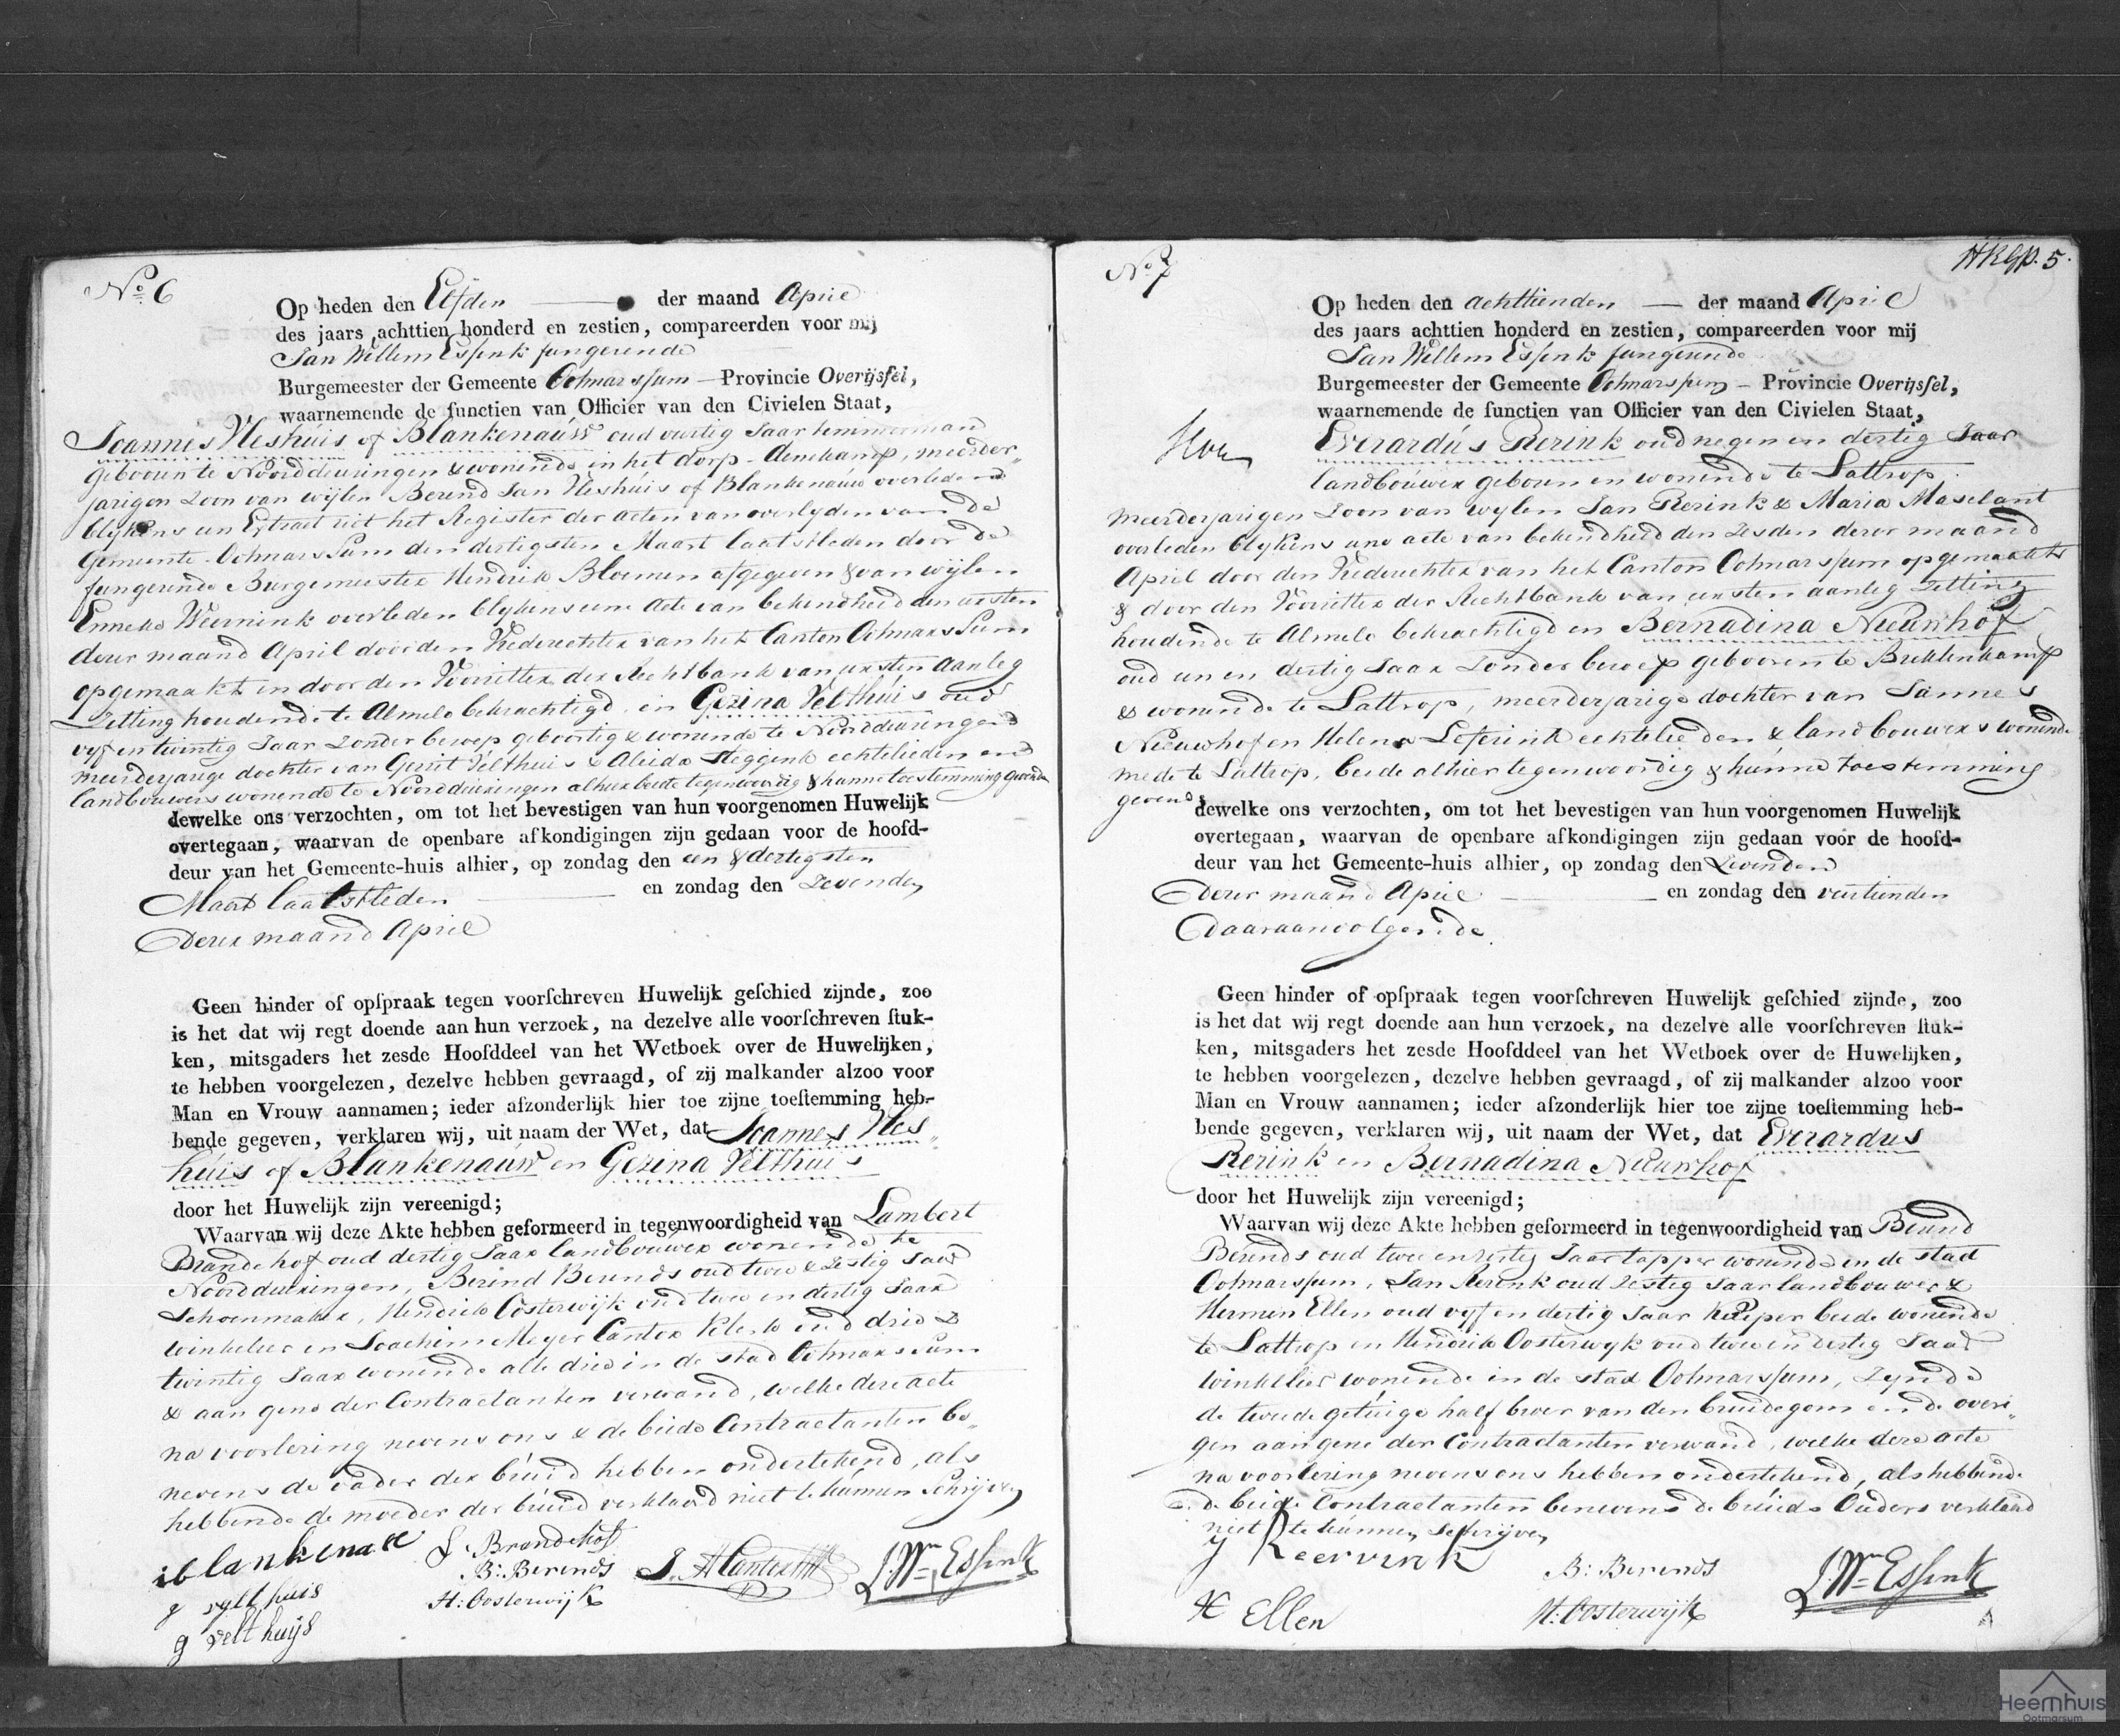 No. 6
Op heden den Elfden der maand April
des jaars achttien honderd en zestien, compareerden voor mij
Jan Willem Essink fungerende
Burgemeester der Gemeente Ootmarssum Provincie Overijsſel,
waarnemende de functien van Officier van den Civielen Staat,
Joannes Fleshuis of Blankenauw oud veertig Jaar timmerman
gebooren te Noorddeuringen & wonende in het dorp Denekamp, meerder„
jarigen Zoon van wijlen Berend Jan Fleshuis of Blankenauw overleden
blykens een Extract uit het Register der acten van overlyden van de
Gemeente Ootmarssum den dertigsten Maart laatstleden door de
fungerende Burgemeester Hendrik Bloemen afgegeven & van wijlen
Enneke Weernink overleden blykens eene Acte van bekendheid den eersten
dezer maand April door den Vrederechter van het Canton Ootmarssum
opgemaakt en door den Voorzitter der Rechtbank van eersten aanleg
Zitting houdende te Almelo bekrachtigd, en Gezina Velthuis oud
vyf en twintig Jaar zonder beroep geboortig & wonende te Noorddeuringen
meerderjarige dochter van Gerrit Velthuis & Aleida Heggink echtelieden en
landbouwers wonende te Noorddeuringen alhier beide tegenwoordig & hunne toestemming gevende
dewelke ons verzochten, om tot het bevestigen van hun voorgenomen Huwelijk
overtegaan, waarvan de openbare afkondigingen zijn gedaan voor de hoofd-
deur van het Gemeente-huis alhier, op zondag den een & dertigsten
Maart laatstleden en zondag den Zevenden
dezer maand April
Geen hinder of opſpraak tegen voorſchreven Huwelijk geſchied zijnde, zoo
is het dat wij regt doende aan hun verzoek, na dezelve alle voorſchreven ſtuk-
ken, mitsgaders het zesde Hoofddeel van het Wetboek over de Huwelijken,
te hebben voorgelezen, dezelve hebben gevraagd, of zij malkander alzoo voor
Man en Vrouw aannamen; ieder afzonderlijk hier toe zijne toeſtemming heb-
bende gegeven, verklaren wij, uit naam der Wet, dat Joannes Fles„
huis of Blankenauw en Gezina Velthuis
door het Huwelijk zijn vereenigd;
Waarvan wij deze Akte hebben geformeerd in tegenwoordigheid van Lambert
Brandehof oud dertig Jaar landbouwer wonende te
Noorddeuringen, Berend Berends oud twee & zestig Jaar
Schoenmaker, Hendrik Oosterwijk oud twee en dertig Jaar
winkelier en Joachim Meyer Cantor Klerk oud drie &
twintig Jaar wonende alle drie in de stad Ootmarssum
& aan geene der Contractanten verwand, welke deze acte
na voorlezing nevens ons & de beide Contractanten be„
nevens de vader der bruid hebben ondertekend, als
hebbende de moeder der bruid verklaard niet te kunnen Schrijven
L. Brandehof
B: Berends
H: Oosterwijk
J. Wm. Essink
g velthuis
g velthuijs
No. 7
HKGp. 5.
Op heden den achttienden der maand April
des jaars achttien honderd en zestien, compareerden voor mij
Jan Willem Essink fungerende
Burgemeester der Gemeente Ootmarssum Provincie Overijsſel,
waarnemende de functien van Officier van den Civielen Staat,
Everardus Reerink oud negen en dertig Jaar
landbouwer gebooren en wonende te Lattrop
meerderjarigen Zoon van wylen Jan Reerink & Maria Maselant
overleden blykens eene acte van bekendheid den Zesden dezer maand
April door den Vrederechter van het Canton Ootmarssum opgemaakt
& door den Voorzitter der Rechtbank van eersten aanleg Zitting
houdende te Almelo bekrachtigd en Bernadina Nieuwhof
oud een en dertig Jaar zonder beroep gebooren te Breklenkamp
& wonende te Lattrop, meerderjarige dochter van Jannes
Nieuwhof en Helena Leferink echtelieden & landbouwers wonende
mede te Lattrop, beide alhier tegenwoordig & hunne toestemming
gevende
dewelke ons verzochten, om tot het bevestigen van hun voorgenomen Huwelijk
overtegaan, waarvan de openbare afkondigingen zijn gedaan voor de hoofd-
deur van het Gemeente-huis alhier, op zondag den Zevenden
dezer maand April en zondag den veertienden
daaraanvolgende
Geen hinder of opſpraak tegen voorſchreven Huwelijk geſchied zijnde, zoo
is het dat wij regt doende aan hun verzoek, na dezelve alle voorſchreven ſtuk-
ken, mitsgaders het zesde Hoofddeel van het Wetboek over de Huwelijken,
te hebben voorgelezen, dezelve hebben gevraagd, of zij malkander alzoo voor
Man en Vrouw aannamen; ieder afzonderlijk hier toe zijne toeſtemming heb-
bende gegeven, verklaren wij, uit naam der Wet, dat Everardus
Reerink en Bernadina Nieuwhof
door het Huwelijk zijn vereenigd;
Waarvan wij deze Akte hebben geformeerd in tegenwoordigheid van Berend
Berends oud twee en zestig Jaar tapper wonende in de stad
Ootmarssum, Jan Reerink oud Zestig Jaar landbouwer &
Hermen Ellen oud vyf en dertig Jaar Kuiper beide wonende
te Lattrop en Hendrik Oosterwyk oud twee en dertig Jaar
winkelier wonende in de stad Ootmarssum, Zynde
de tweede getuige half broer van den bruidegom en de overi„
gen aan geene der Contractanten verwand, welke deze acte
na voorlezing nevens ons hebben ondertekend, als hebbende
de beide Contractanten benevens de bruids Ouders verklaard
niet te kunnen schrijven
J Reerink
B: Berends
J. Wm. Essink
H Ellen
H: Oosterwijk
Heemhuis
Ootmarsum